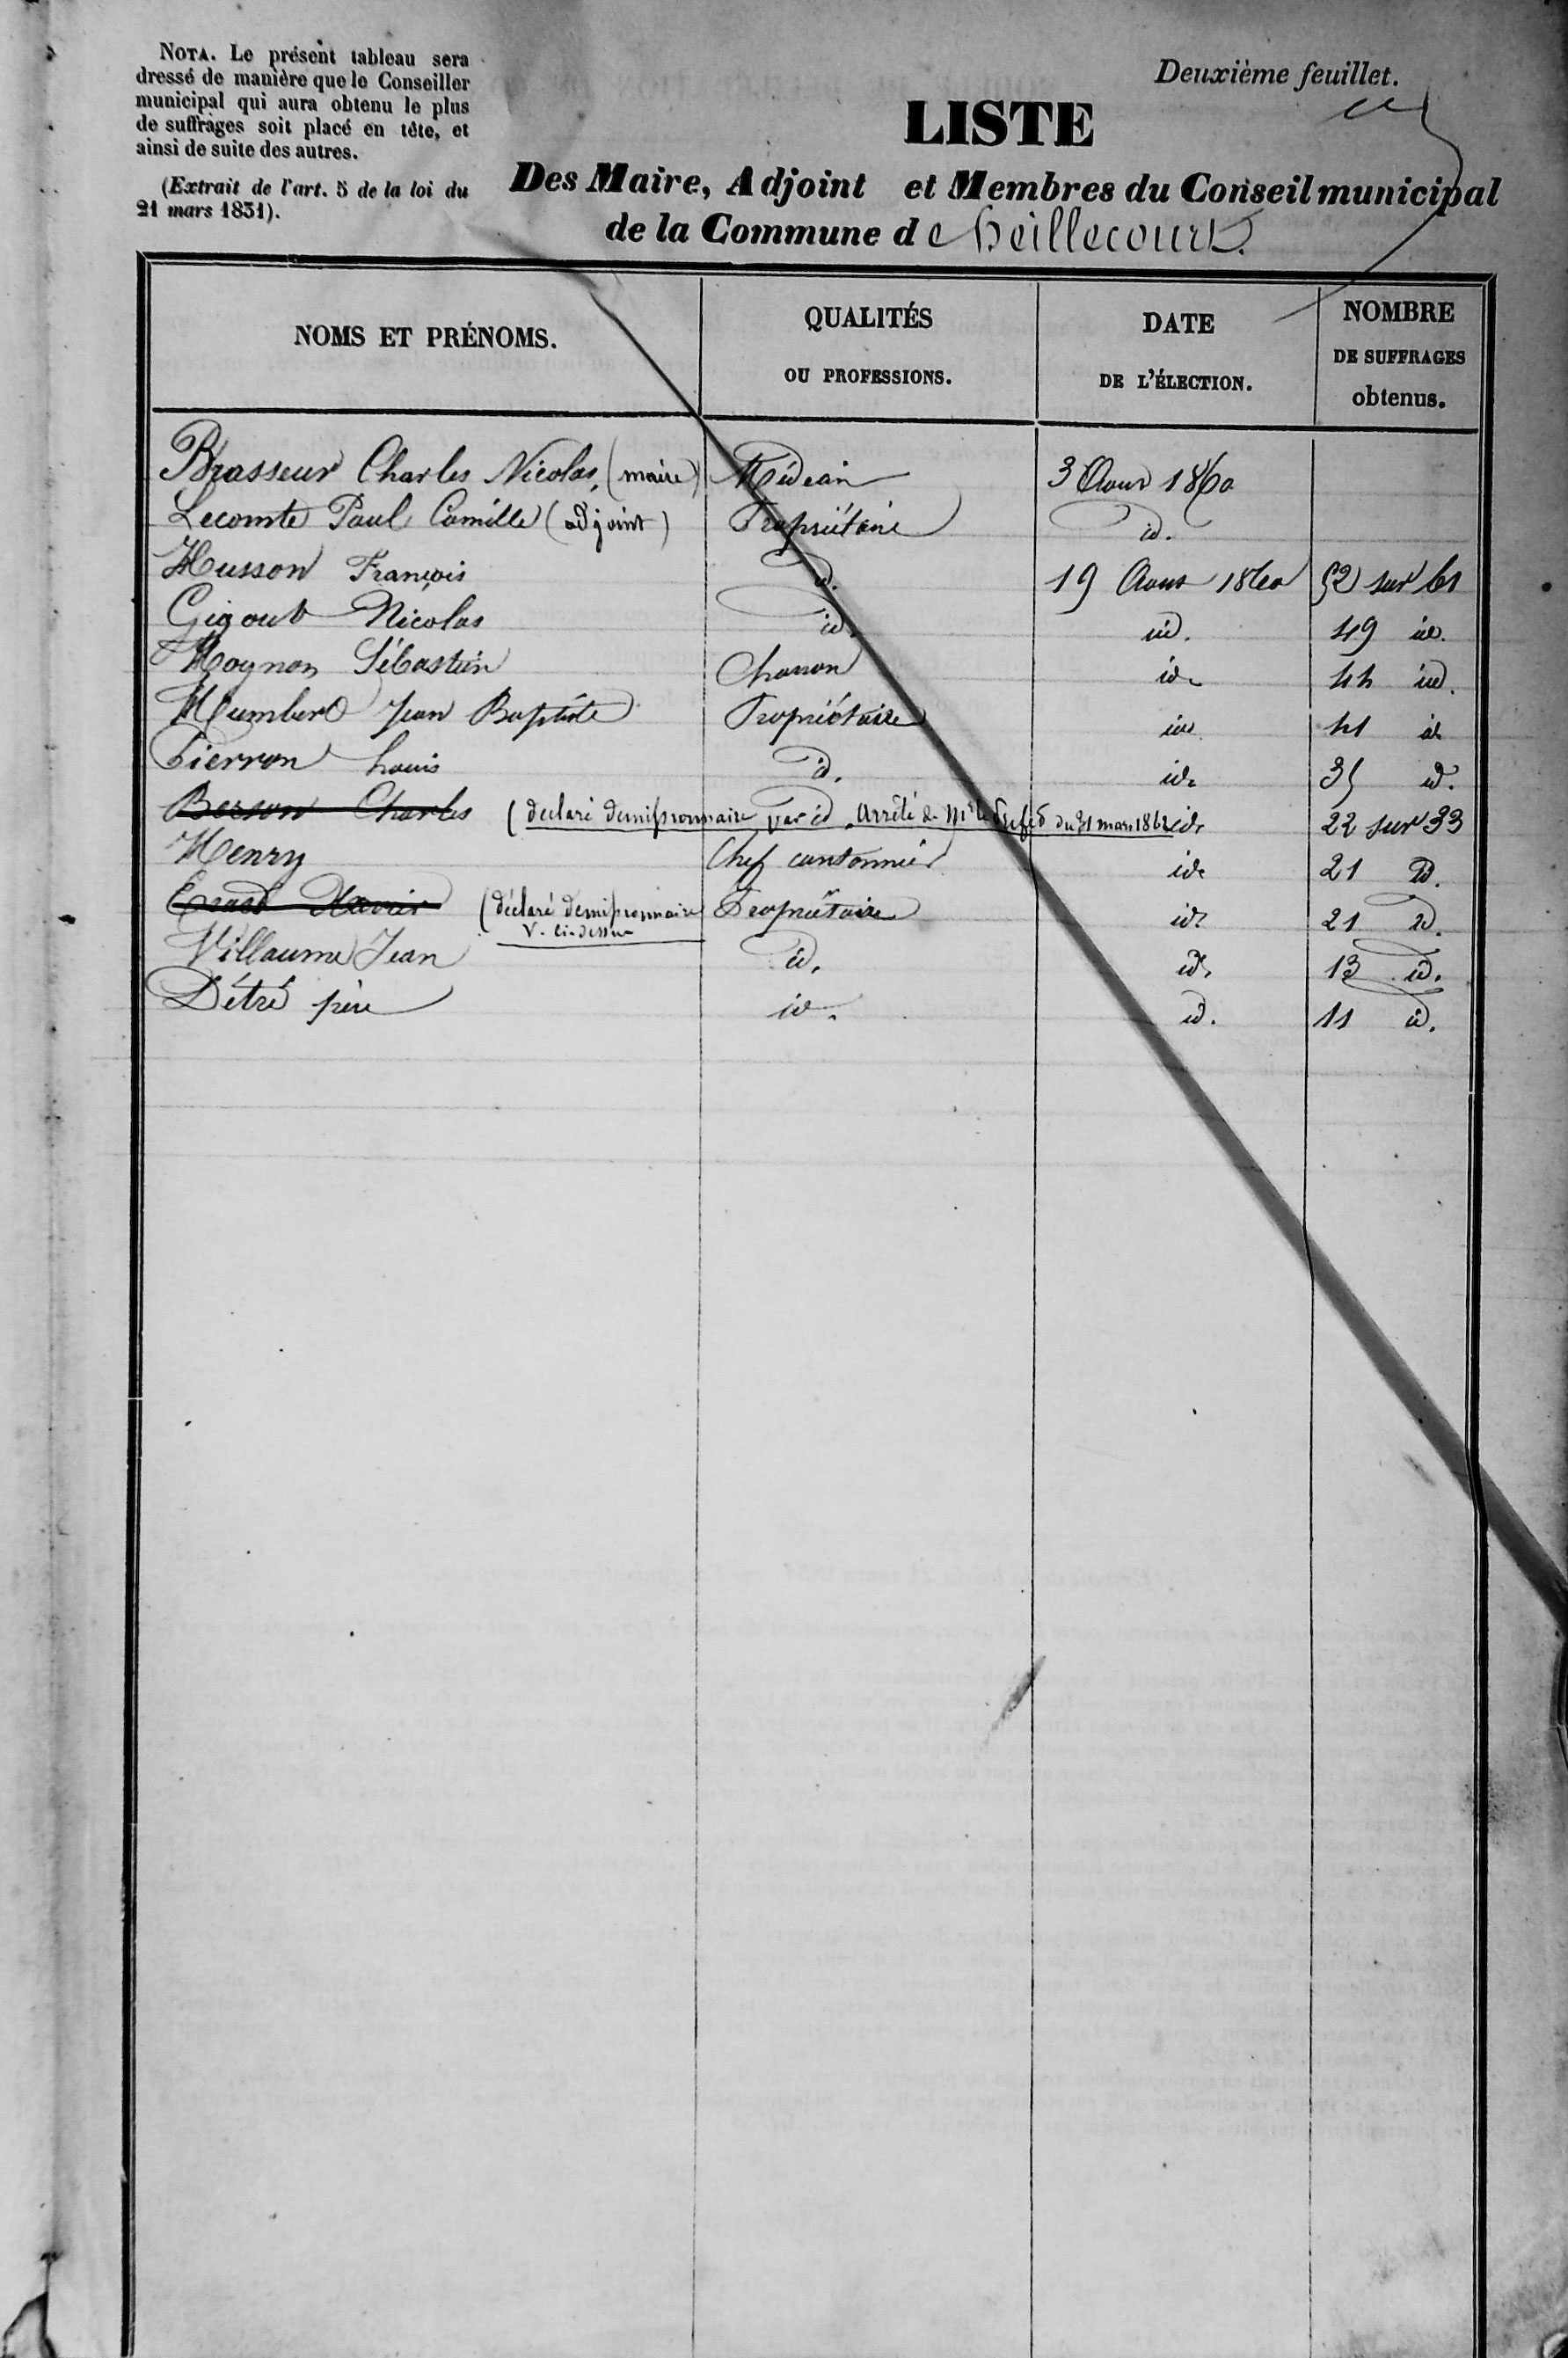 NOTA. Le présent tableau sera
dressé de manière que le Conseiller
municipal qui aura obtenu le plus
de suffrages soit placé en tête, et
ainsi de suite des autres.
(Extrait de l'art. 5 de la loi du
21 mars 1831).
Deuxième feuillet.
LISTE
Des Maire, Adjoint et Membres du Conseil municipal
de la Commune de heillecourt.
NOMS ET PRÉNOMS. QUALITÉS OU PROFESSIONS. DATE DE L'ÉLECTION. NOMBRE DE SUFFRAGES obtenus.
Brasseur Charles Nicolas, (maire) Médecin 3 Aout 1860
Lecomte Paul Camille (adjoint) Propriétaire id.
Husson François id. 19 Aout 1860 52 sur 61
Gigout Nicolas id. id. 49 id.
Hoynon Sébastien Charron id. 44 id.
Humbert Jean Baptiste Propriétaire id. 41 id.
Pierron Louis id. id. 35 id.
Berson Charles (déclaré démissionnaire par id. Arrêté de Mr le Préfet du 31 mars 1862 id. 22 sur 33
Henry Chef cantonnier id. 21 id.
Xavier (déclaré démissionnaire Propriétaire id. 21 id.
V. ci-dessus
Villaume Jean id. id. 13 id.
Détré père id. id. 11 id.